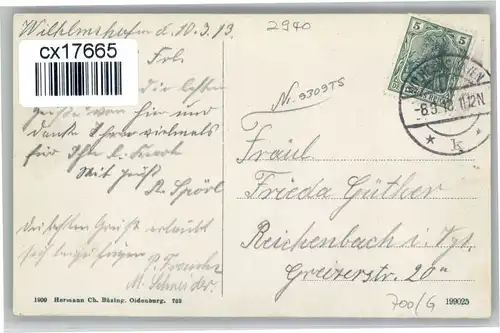 Wilhelmshafen d. 10.3.13.
cx17665
Frl.
die besten
Grüße von hier und
danke Ihnen vielmals
für Ihre l. Karte
Mit Gruß
R. Spörl
Die besten Grüße erlaubt
sich beizufügen
P. Francke
M. Schneider.
1909 Hermann Ch. Büsing. Oldenburg. 769
2940
Nr. 9309TS
5 5
-8.3.13. 11-12N
* k *
Fräul.
Frieda Güther
Reichenbach i. Vgt.
Greizerstr. 20"
199025
700/G